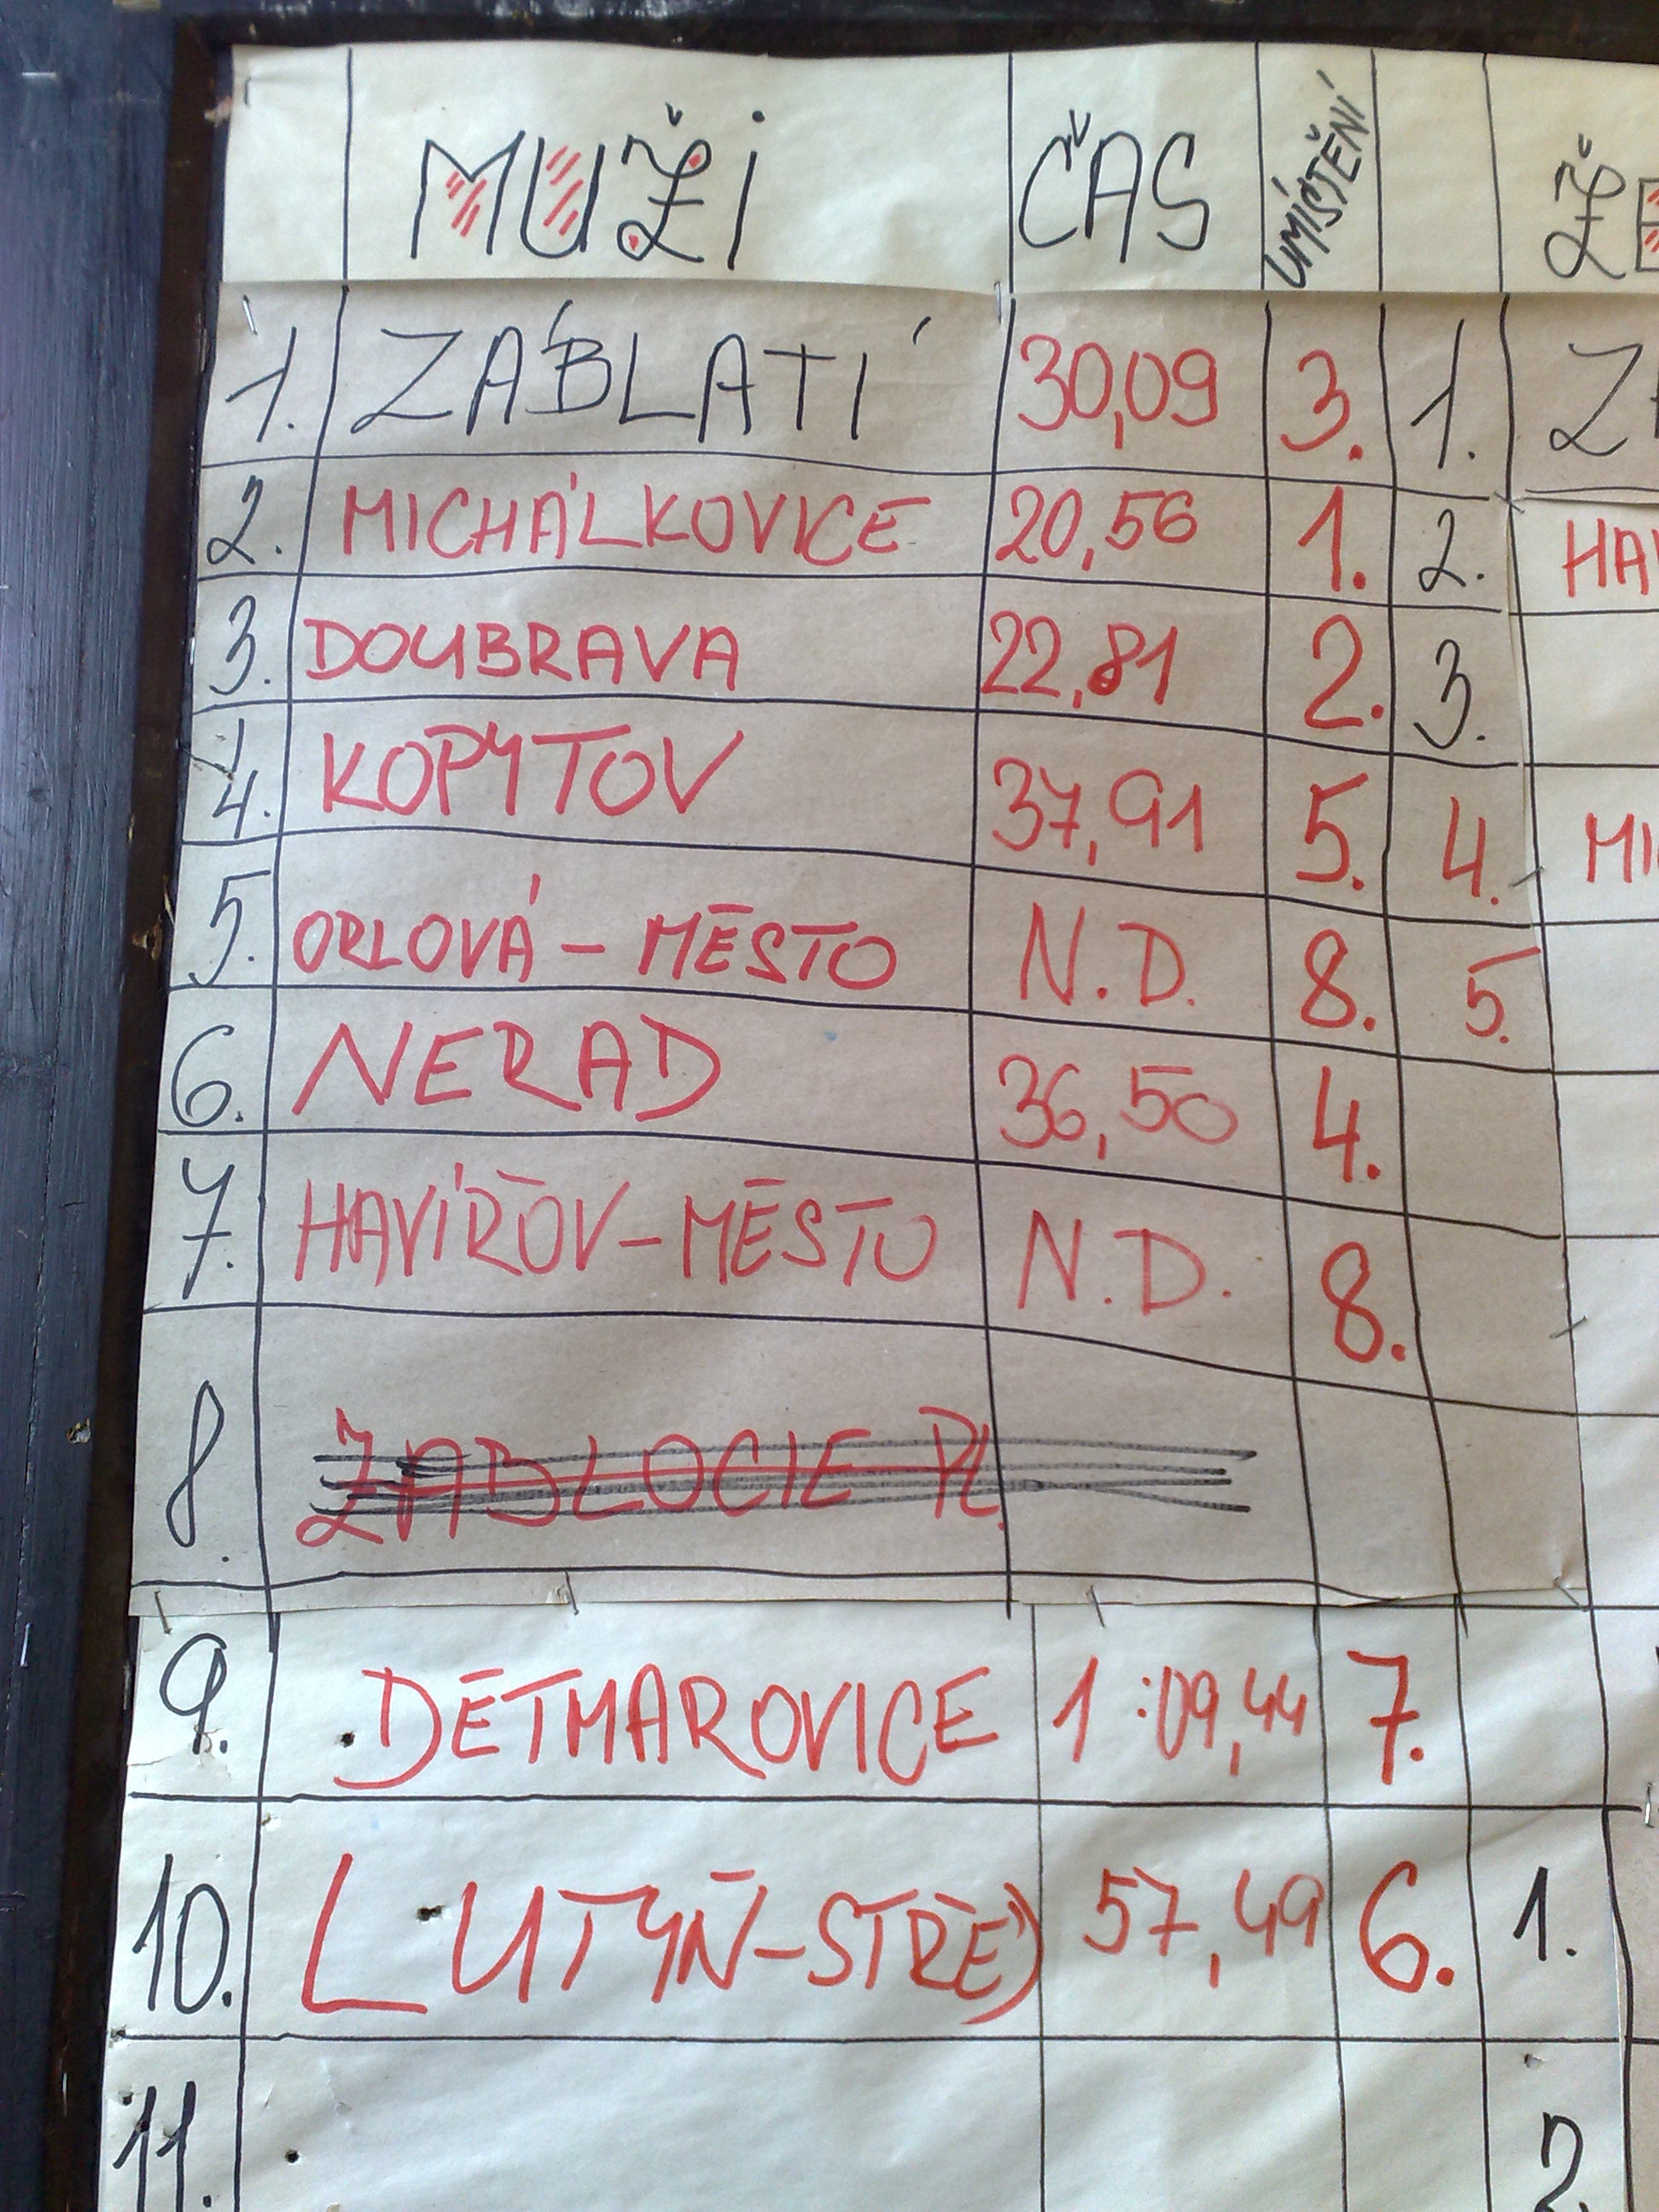 MUŽI ČAS UMÍSTĚNÍ
1. ZÁBLATÍ 30,09 3. 1.
2. MICHÁLKOVICE 20,56 1. 2. HAV
3. DOUBRAVA 22,81 2. 3.
4. KOPYTOV 37,91 5. 4. MI
5. ORLOVÁ – MĚSTO N.D. 8. 5.
6. NERAD 36,50 4.
7. HAVÍŘOV – MĚSTO N.D. 8.
8. ZABLOCIE PL.
9. DĚTMAROVICE 1:09,44 7.
10. LUTYŇ – STŘE) 57,49 6. 1.
11. 2.